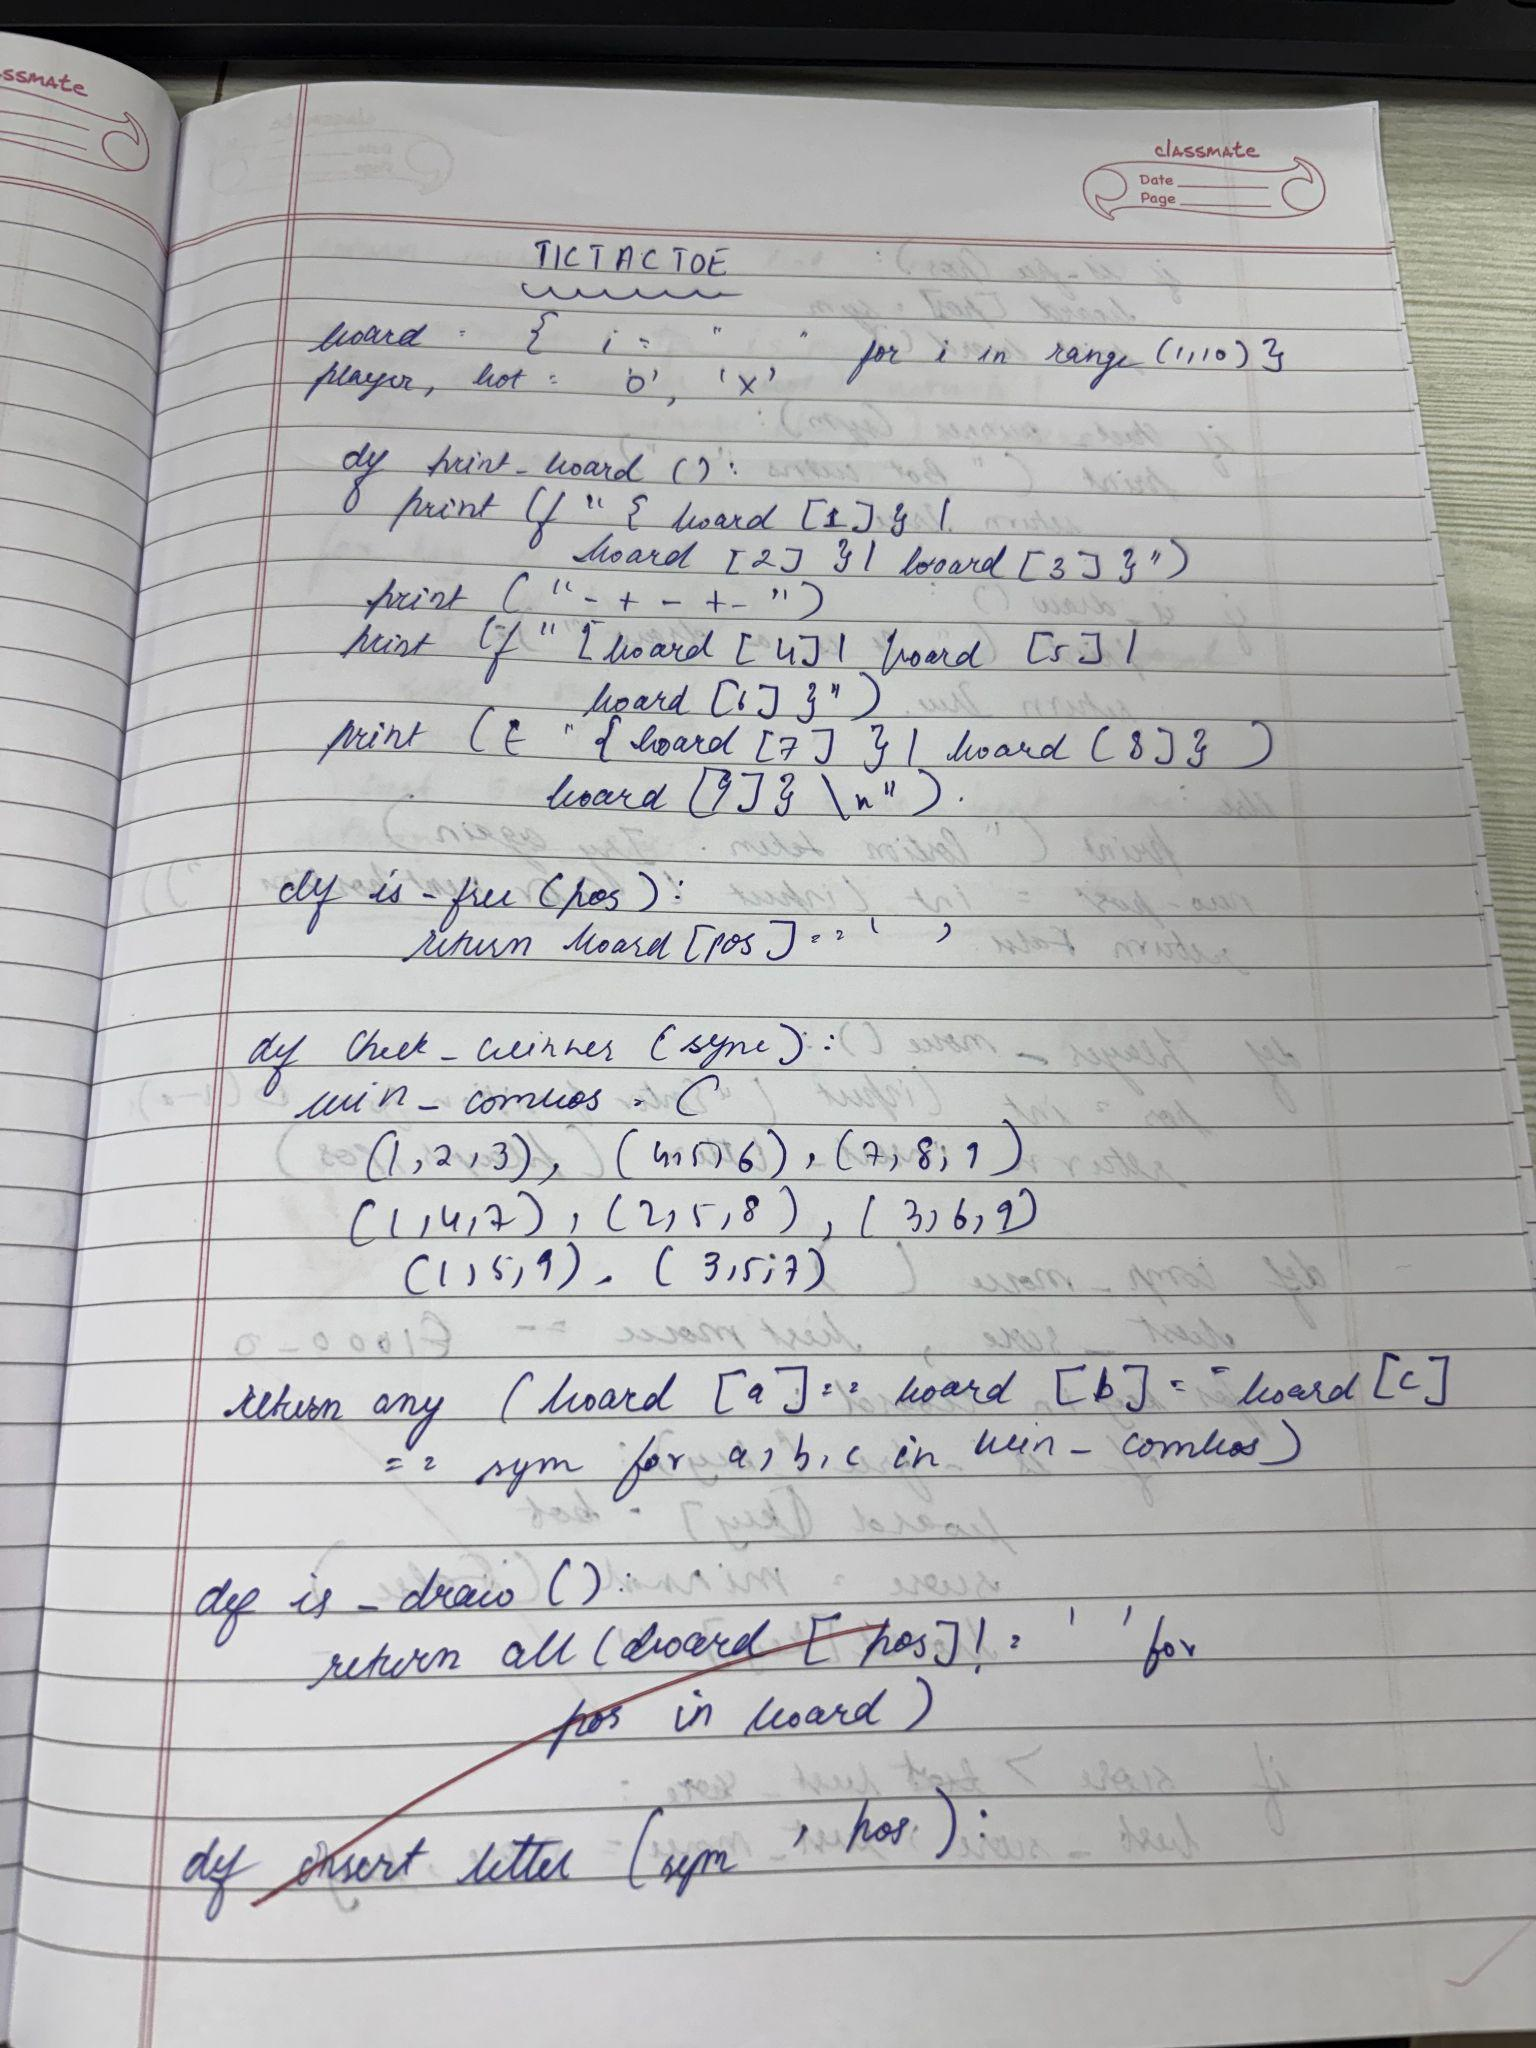 ssmate
classmate
Date
Page
TICTACTOE
board = { i = " " for i in range (1,10) }
player, bot = 'O', 'X'
def print_board ():
print (f " { board [1] } |
board [2] } | board [3] } ")
print ( " - + - + - " )
print (f " { board [4] | board [5] |
board [6] } " )
print ( f " { board [7] } | board ( 8 ] } )
board [9] } \n " ) .
def is_free (pos) :
return board [pos] == ' '
def check_winner (sym) :
win_combos = (
(1,2,3), (4,5,6), (7,8,9)
(1,4,7), (2,5,8), (3,6,9)
(1,5,9), (3,5,7)
return any (board [a] == board [b] == board [c]
== sym for a, b, c in win_combos)
def is_draw () :
return all (board [pos] != ' ' for
pos in board )
def insert letter (sym , pos) :